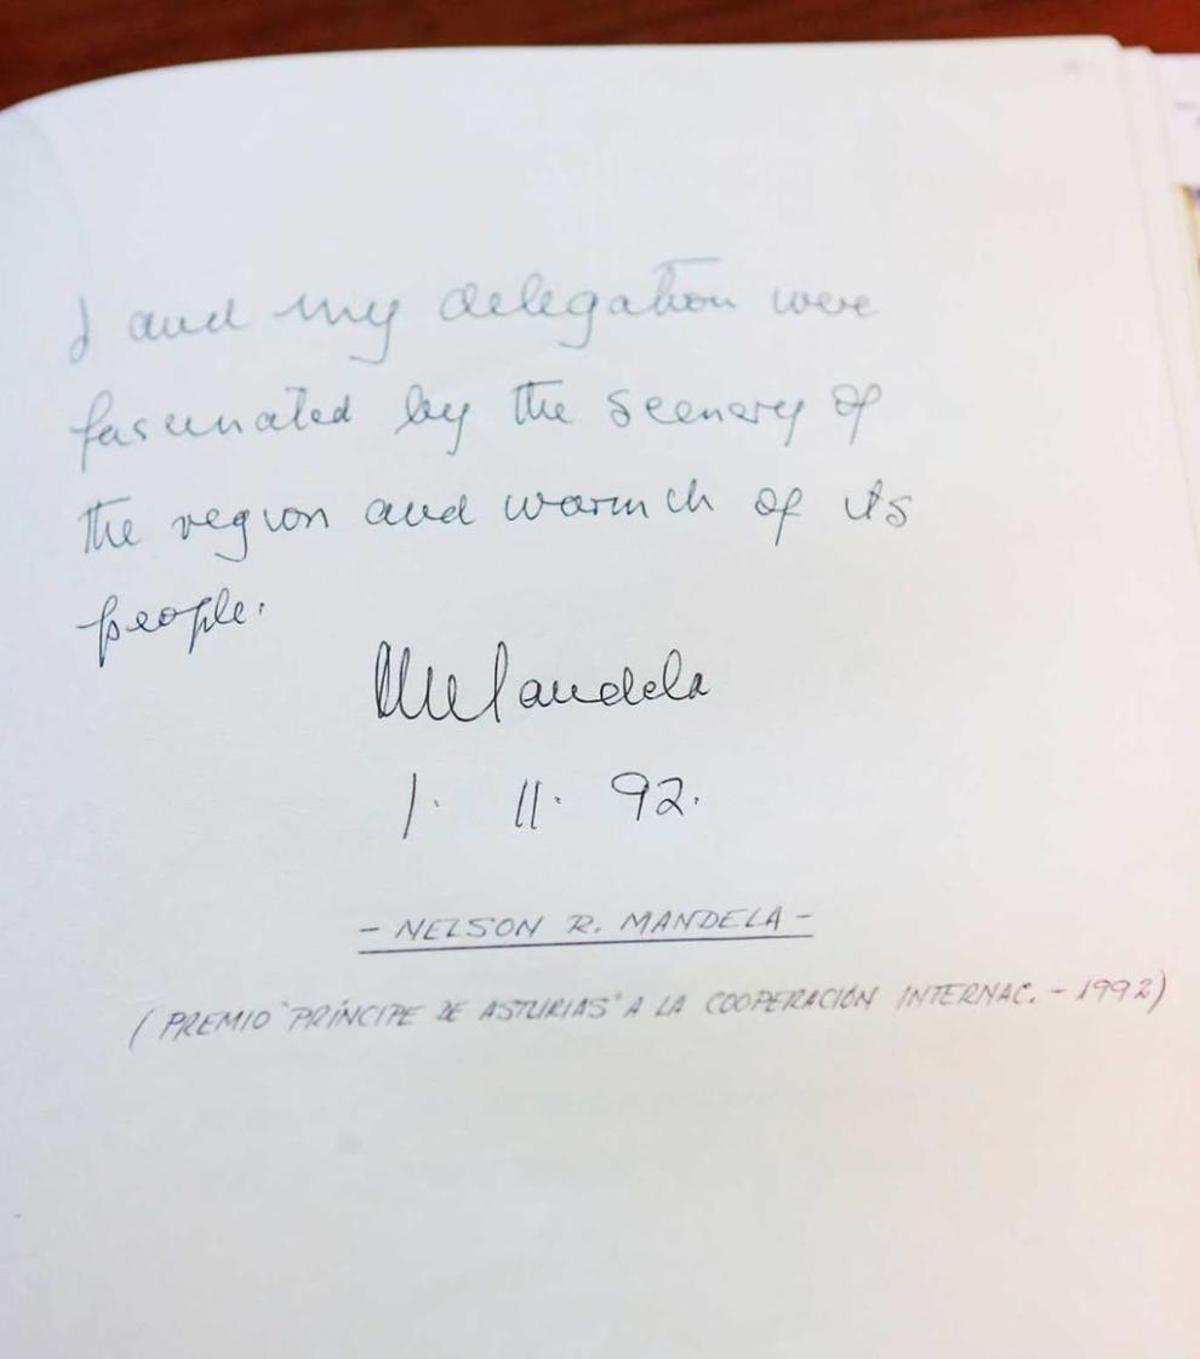 I and my delegation were
fascinated by the scenery of
the region and warmth of its
people.
NMandela
1. 11. 92.
- NELSON R. MANDELA -
(PREMIO "PRÍNCIPE DE ASTURIAS" A LA COOPERACIÓN INTERNAC. - 1992)